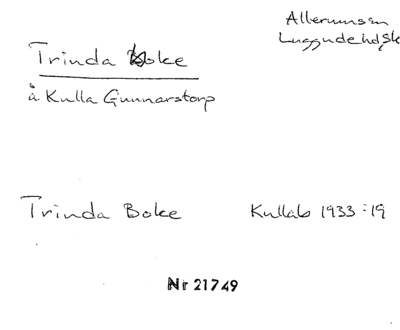 Allerums sn
Luggude hd, Sk
Trinda Boke
å Kulla Gunnarstorp
Trinda Boke Kullab 1933:19
Nr 21749